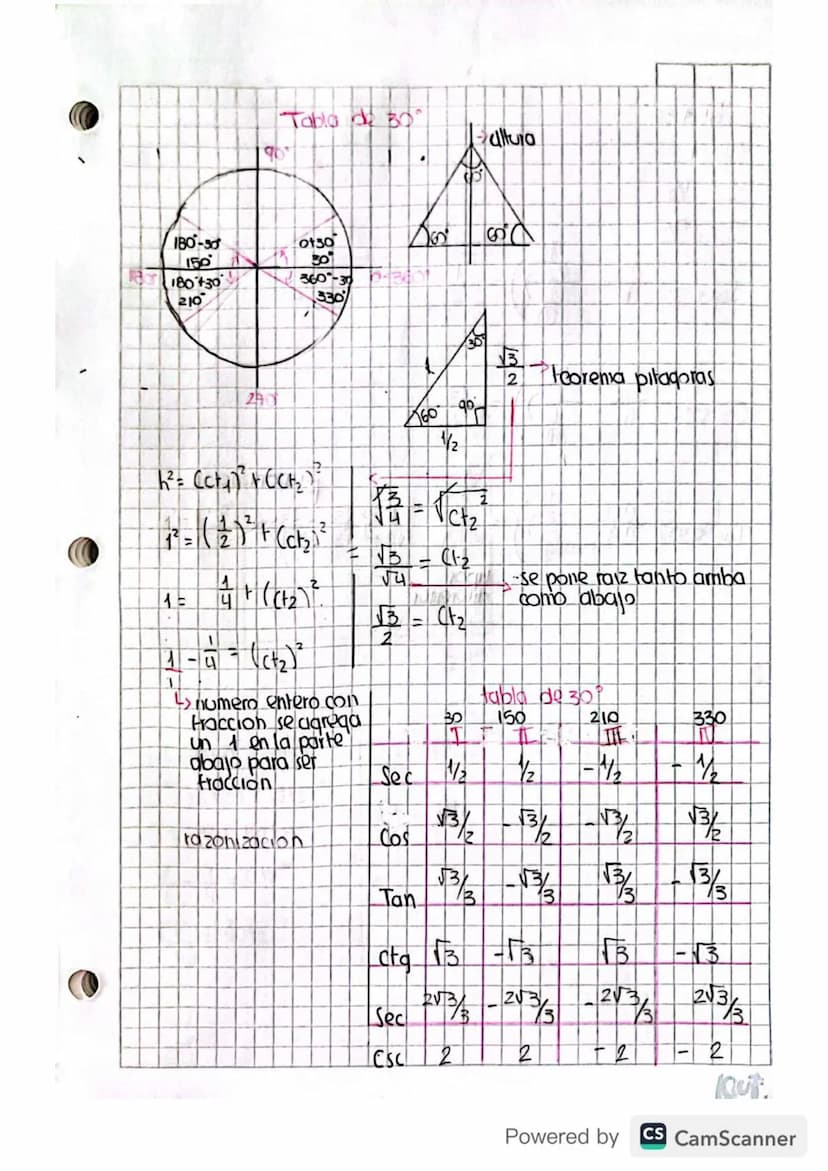 Tabla de 30°
90°
→altura
60°
60°
60°
180°-30°
150°
0+30°
30°
180°
180°+30°
210°
360°-30
330°
0-360°
270°
30°
1
√3/2 → teorema pitagoras
60°
90°
1/2
h²= (ct₁)²+(ct₂)²
1²=(1/2)²+(ct₂)²
1= 1/4 + (ct₂)²
1/1 - 1/4 = (ct₂)²
↳numero entero con
fraccion se agrega
un 1 en la parte
abajo para ser
fraccion
razonizacion
√3/4 = √ct₂²
= √3/√4 = ct₂
→ -se pone raiz tanto arriba
como abajo
√3/2 = ct₂
tabla de 30°
30 150 210 330
I II III IV
Sec 1/2 1/2 -1/2 - 1/2
Cos √3/2 -√3/2 -√3/2 √3/2
Tan √3/3 -√3/3 √3/3 -√3/3
Ctg √3 -√3 √3 -√3
Sec 2√3/3 -2√3/3 -2√3/3 2√3/3
Csc 2 2 -2 - 2
Powered by CS CamScanner